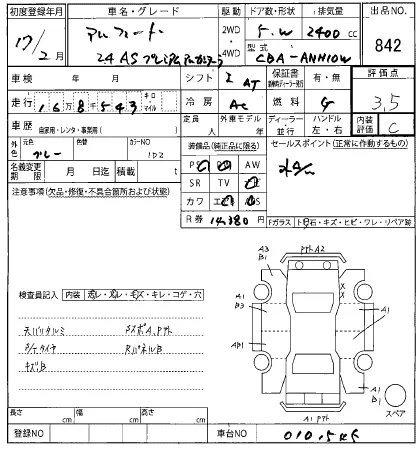 初度登録年月 車名・グレード 駆動 ドア数・形状 排気量 出品NO.
17/2月 アルファード 2WD 5.W 2400cc 842
24 AS プレミアムアルカンターラ 4WD 型式 CBA-ANH10W
車検 年 月 シフト I AT 保証書 有・無 評価点
走行 16万8543 キロ マイル 冷房 AC 燃料 G 3.5
車歴 自家用・レンタ・事業用( ) 定員 人 外車モデル 年 ディーラー 並行 ハンドル 左・右 内装評価 C
元色 グレー 色替 カラーNO 1D2 装備品(純正品に限る) セールスポイント(正常に作動するもの)
名義変更期限 月 日迄 積載 t PS PW AW
注意事項(欠品・修復・不具合箇所および状態) SR TV
カワ
R券 14,380円 Fガラス 石・キズ・ヒビ・ワレ・リペア跡
A3 B1 A2
検査員記入 内装 ボレ・ヌレ・キズ・キレ・コゲ・穴
A1 B3 A1
天バリタルミ
タイヤ RパネルB
キズB
AB1 A1 B1
スペア
A1
長さ cm 幅 cm 高さ cm
登録NO 車台NO